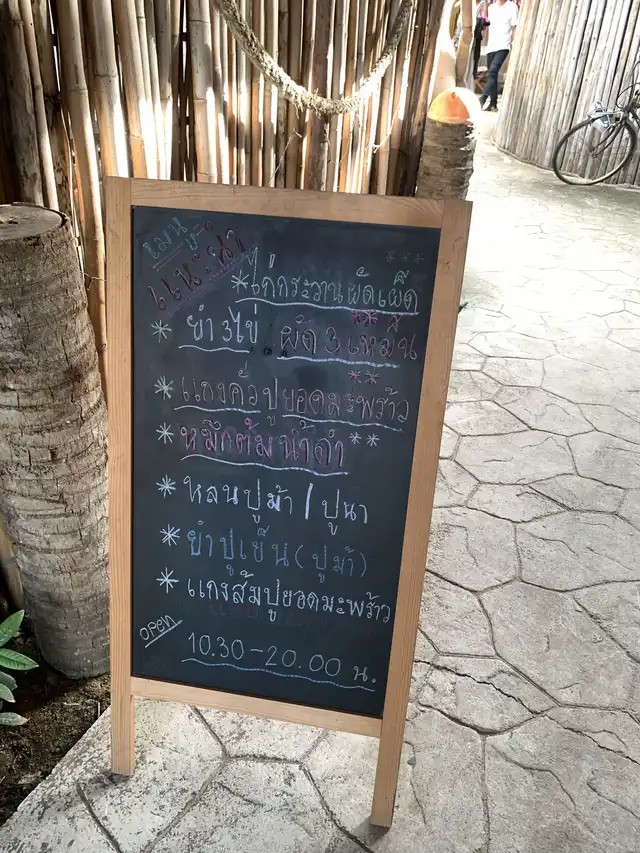 เมนู
แนะนำ
*ไก่กระวานผัดเผ็ด
* ยำ 3 ไข่ / ผัด 3 เหม็น
* แกงคั่วปูยอดมะพร้าว
* หมึกต้มน้ำดำ **
* หลนปูม้า / ปูนา
* ยำปูเย็น (ปูม้า)
* แกงส้มปูยอดมะพร้าว
open
10.30 - 20.00 น.